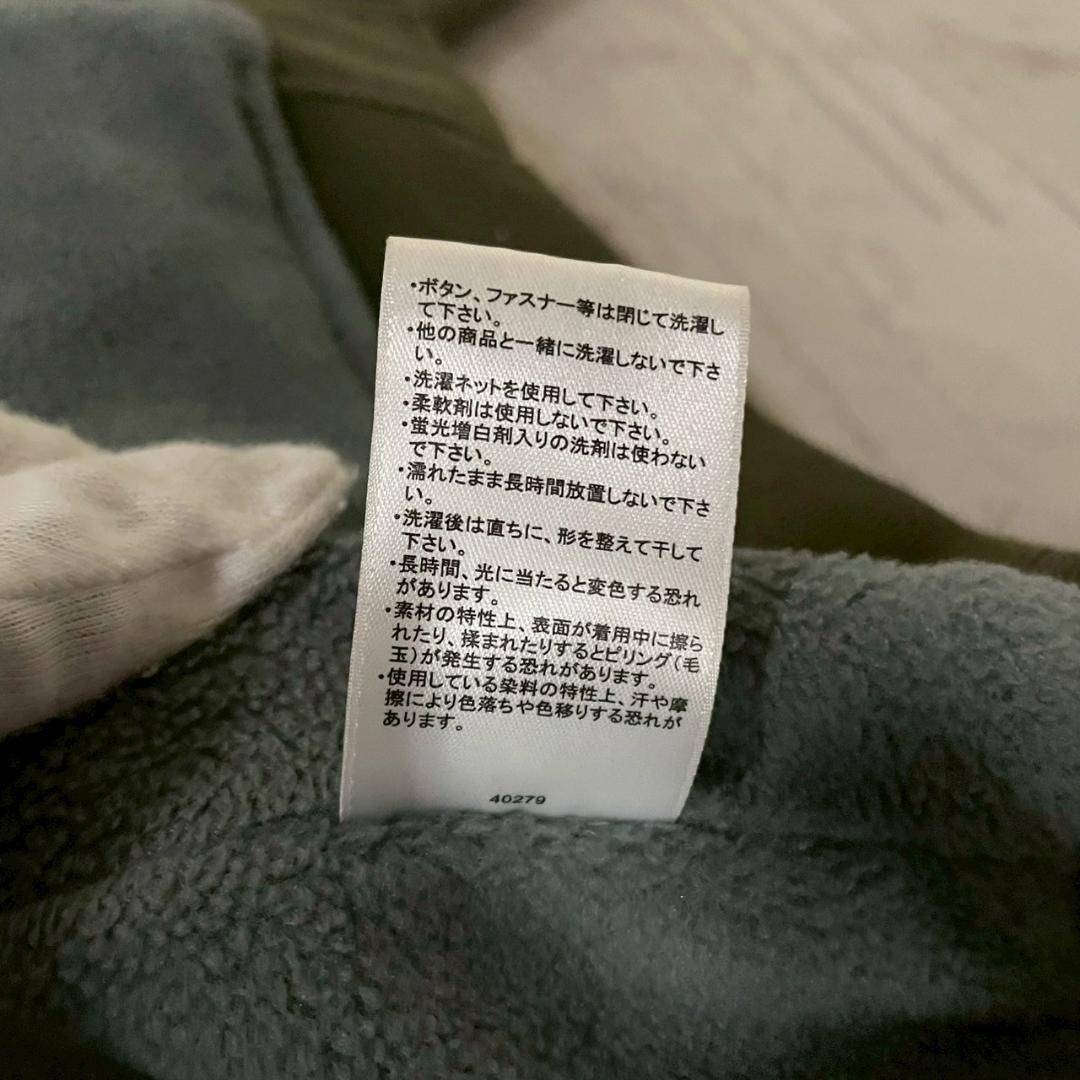 ・ボタン、ファスナー等は閉じて洗濯し
て下さい。
・他の商品と一緒に洗濯しないで下さ
い。
・洗濯ネットを使用して下さい。
・柔軟剤は使用しないで下さい。
・蛍光増白剤入りの洗剤は使わない
で下さい。
・濡れたまま長時間放置しないで下さ
い。
・洗濯後は直ちに、形を整えて干して
下さい。
・長時間、光に当たると変色する恐れ
があります。
・素材の特性上、表面が着用中に擦ら
れたり、揉まれたりするとピリング(毛
玉)が発生する恐れがあります。
・使用している染料の特性上、汗や摩
擦により色落ちや色移りする恐れが
あります。
40279